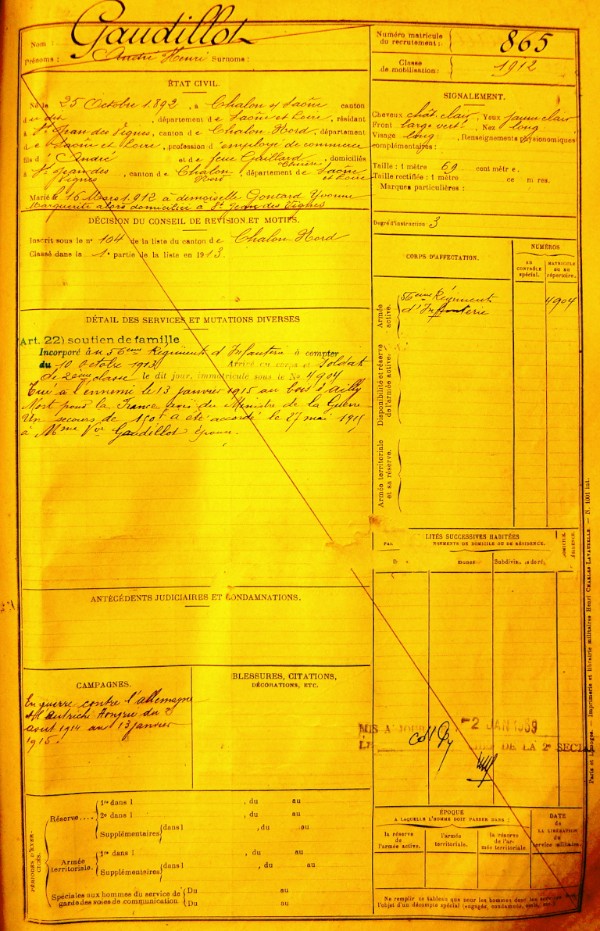 Nom : Gaudillot
Prénoms : André Henri Surnoms :
Numéro matricule
du recrutement : 865
Classe
de mobilisation : 1912
ÉTAT CIVIL.
Né le 25 Octobre 1892, à Chalon s/ Saône canton
du dit, département de Saône et Loire, résidant
à St Jean des Vignes, canton de Chalon Nord, département
de Saône et Loire, profession d'employé de commerce
fils d' André et de feue Gaillard, domiciliés
à St Jean des Vignes, canton de Chalon Nord, département de Saône et Loire
Marié le 16 Mars 1912 à demoiselle Gontard Yvonne
Marguerite alors domiciliée à St Jean des Vignes
SIGNALEMENT.
Cheveux chât. clair, Yeux jaune clair
Front large vert, Nez long
Visage long, Renseignements physionomiques
complémentaires :
Taille : 1 mètre 69 centimètre.
Taille rectifiée : 1 mètre
Marques particulières :
Degré d'instruction : 3
DÉCISION DU CONSEIL DE REVISION ET MOTIFS.
Inscrit sous le n° 104 de la liste du canton de Chalon Nord
Classé dans la 1e partie de la liste en 1913.
CORPS D'AFFECTATION.
NUMÉROS
AU CONTRÔLE SPÉCIAL.
MATRICULE OU AU RÉPERTOIRE.
Armée active.
56ème Régiment d'Infanterie
4904
Disponibilité et réserve de l'armée active.
Armée territoriale et sa réserve.
DÉTAIL DES SERVICES ET MUTATIONS DIVERSES
(Art. 22) soutien de famille
Incorporé au 56ème Régiment d'Infanterie à compter
du 10 Octobre 1913. Arrivé au corps et Soldat
de 2ème classe le dit jour, immatriculé sous le No 4904
Tué à l'ennemi le 13 janvier 1915 au bois d'ailly
Mort pour la France avis du Ministre de la Guerre
Un secours de 150f a été accordé le 27 mai 1915
à Mme Vve Gaudillot épouse.
LITÉS SUCCESSIVES HABITÉES
ANTÉCÉDENTS JUDICIAIRES ET CONDAMNATIONS.
CAMPAGNES.
En guerre contre l'allemagne
et l'Autriche Hongrie du 2
août 1914 au 13 janvier
1915.
BLESSURES, CITATIONS,
DÉCORATIONS, ETC.
MIS A JOUR 2 JAN 1969
DE LA 2e SECT
PÉRIODES D'EXERCICES.
Réserve....
1re dans l , du au
2e dans l , du au
Supplémentaires dans l , du au
Armée territoriale.
1re dans l , du au
Supplémentaires dans l , du au
Spéciales aux hommes du service de
garde des voies de communication
Du au
Du au
ÉPOQUE
A LAQUELLE L'HOMME DOIT PASSER DANS :
la réserve de l'armée active.
l'armée territoriale.
la réserve de l'armée territoriale.
DATE
de LA LIBÉRATION du service militaire.
Ne remplir ce tableau que pour les hommes
l'objet d'un décompte spécial (engagés,
Paris et Limoges. — Imprimerie et librairie militaires Henri CHARLES-LAVAUZELLE.